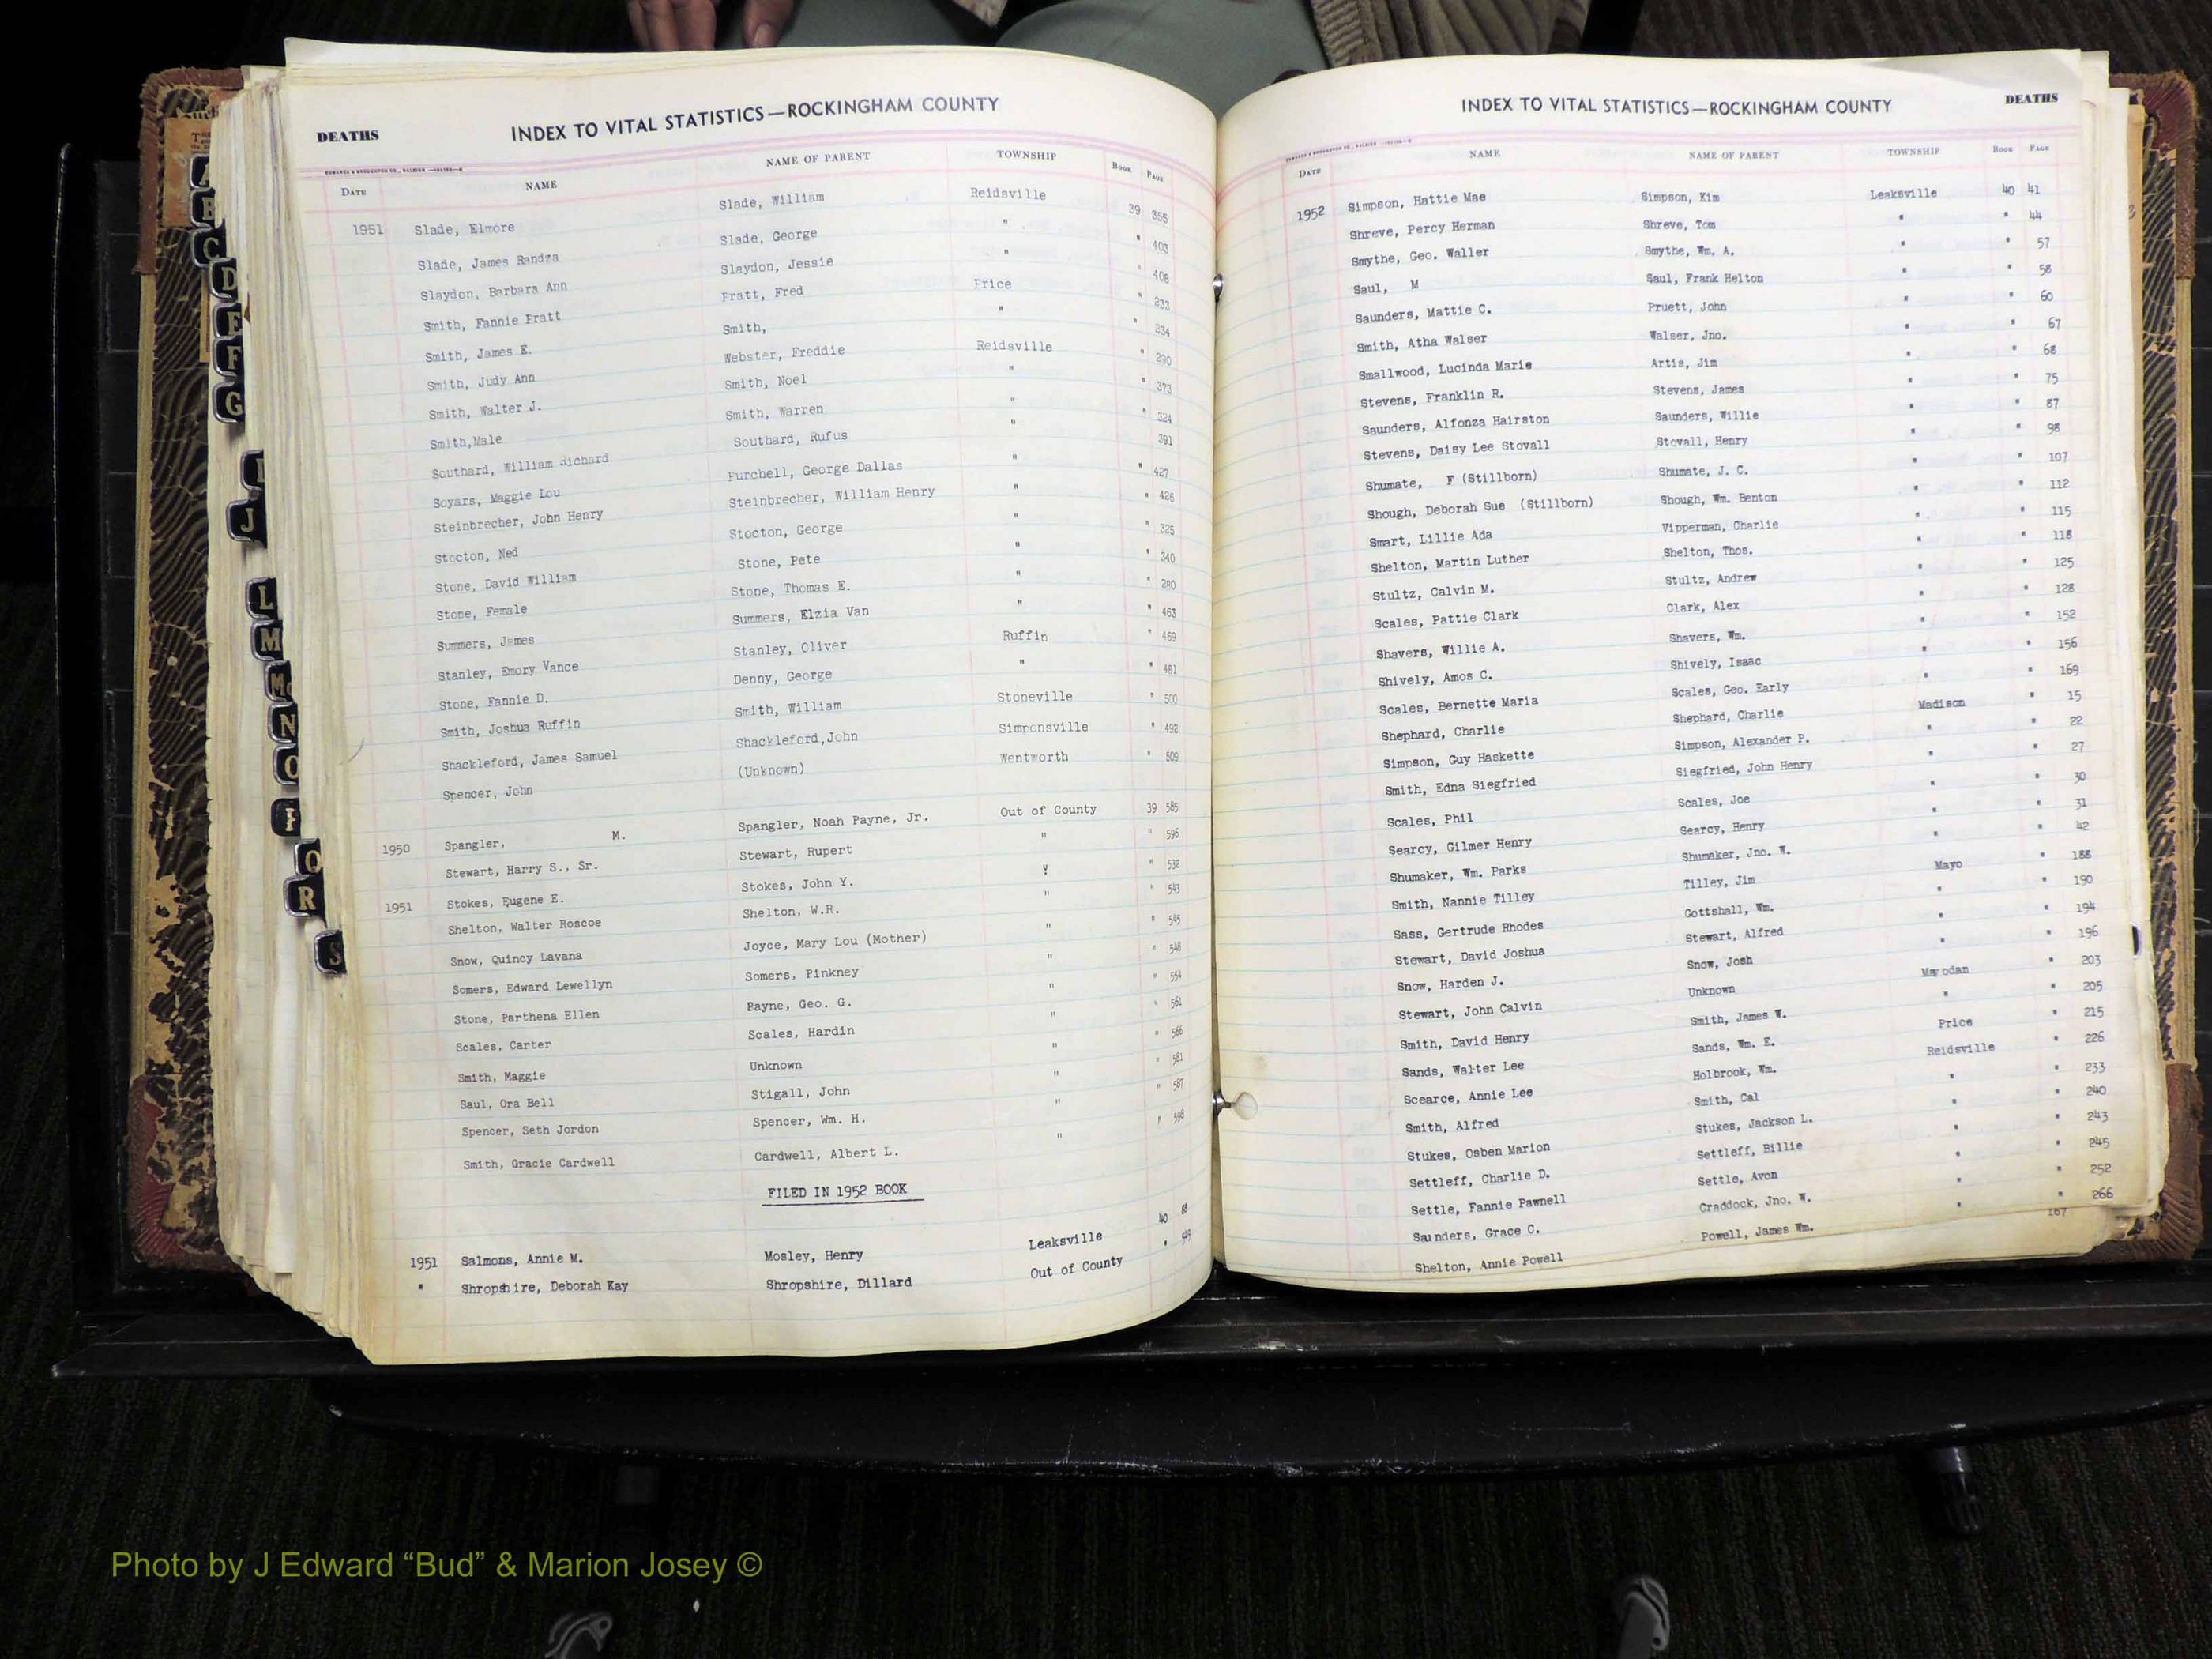 DEATHS
INDEX TO VITAL STATISTICS—ROCKINGHAM COUNTY
DATE NAME NAME OF PARENT TOWNSHIP BOOK PAGE
1951 Slade, Elmore Slade, William Reidsville 39 355
Slade, James Randza Slade, George " " 403
Slaydon, Barbara Ann Slaydon, Jessie " " 408
Smith, Fannie Pratt Pratt, Fred Price " 233
Smith, James E. Smith, " " 234
Smith, Judy Ann Webster, Freddie Reidsville " 290
Smith, Walter J. Smith, Noel " " 373
Smith,Male Smith, Warren " " 324
Southard, William Richard Southard, Rufus " 391
Soyars, Maggie Lou Purchell, George Dallas " " 427
Steinbrecher, John Henry Steinbrecher, William Henry " " 426
Stocton, Ned Stocton, George " " 325
Stone, David William Stone, Pete " " 340
Stone, Female Stone, Thomas E. " " 280
Summers, James Summers, Elzia Van " " 463
Stanley, Emory Vance Stanley, Oliver Ruffin " 469
Stone, Fannie D. Denny, George " " 481
Smith, Joshua Ruffin Smith, William Stoneville " 500
Shackleford, James Samuel Shackleford,John Simponsville " 492
Spencer, John (Unknown) Wentworth " 509
1950 Spangler, M. Spangler, Noah Payne, Jr. Out of County 39 585
Stewart, Harry S., Sr. Stewart, Rupert " " 596
1951 Stokes, Eugene E. Stokes, John Y. " 532
Shelton, Walter Roscoe Shelton, W.R. " " 543
Snow, Quincy Lavana Joyce, Mary Lou (Mother) " " 545
Somers, Edward Lewellyn Somers, Pinkney " " 548
Stone, Parthena Ellen Payne, Geo. G. " " 554
Scales, Carter Scales, Hardin " " 561
Smith, Maggie Unknown " " 566
Saul, Ora Bell Stigall, John " " 581
Spencer, Seth Jordon Spencer, Wm. H. " " 587
Smith, Gracie Cardwell Cardwell, Albert L. " " 598
FILED IN 1952 BOOK
1951 Salmons, Annie M. Mosley, Henry Leaksville 40 88
" Shropshire, Deborah Kay Shropshire, Dillard Out of County "
INDEX TO VITAL STATISTICS—ROCKINGHAM COUNTY
DEATHS
DATE NAME NAME OF PARENT TOWNSHIP BOOK PAGE
1952 Simpson, Hattie Mae Simpson, Kim Leaksville 40 41
Shreve, Percy Herman Shreve, Tom " " 44
Smythe, Geo. Waller Smythe, Wm. A. " " 57
Saul, M Saul, Frank Helton " " 58
Saunders, Mattie C. Pruett, John " " 60
Smith, Atha Walser Walser, Jno. " " 67
Smallwood, Lucinda Marie Artis, Jim " " 68
Stevens, Franklin R. Stevens, James " " 75
Saunders, Alfonza Hairston Saunders, Willie " " 87
Stevens, Daisy Lee Stovall Stovall, Henry " " 98
Shumate, F (Stillborn) Shumate, J. C. " " 107
Shough, Deborah Sue (Stillborn) Shough, Wm. Benton " " 112
Smart, Lillie Ada Vipperman, Charlie " " 115
Shelton, Martin Luther Shelton, Thos. " " 118
Stultz, Calvin M. Stultz, Andrew " " 125
Scales, Pattie Clark Clark, Alex " " 128
Shavers, Willie A. Shavers, Wm. " " 152
Shively, Amos C. Shively, Isaac " " 156
Scales, Bernette Maria Scales, Geo. Early " " 169
Shephard, Charlie Shephard, Charlie Madison " 15
Simpson, Guy Haskette Simpson, Alexander P. " " 22
Smith, Edna Siegfried Siegfried, John Henry " " 27
Scales, Phil Scales, Joe " " 30
Searcy, Gilmer Henry Searcy, Henry " " 31
Shumaker, Wm. Parks Shumaker, Jno. W. " " 42
Smith, Nannie Tilley Tilley, Jim Mayo " 188
Sass, Gertrude Rhodes Gottshall, Wm. " " 190
Stewart, David Joshua Stewart, Alfred " " 194
Snow, Harden J. Snow, Josh " " 196
Stewart, John Calvin Unknown Mayodan " 203
Smith, David Henry Smith, James W. " " 205
Sands, Walter Lee Sands, Wm. E. Price " 215
Scearce, Annie Lee Holbrook, Wm. Reidsville " 226
Smith, Alfred Smith, Cal " " 233
Stukes, Osben Marion Stukes, Jackson L. " " 240
Settleff, Charlie D. Settleff, Billie " " 243
Settle, Fannie Pawnell Settle, Avon " " 245
Saunders, Grace C. Craddock, Jno. W. " " 252
Shelton, Annie Powell Powell, James Wm. " " 266
167
A
B
C
D
E
F
G
I
J
L
M
Mc
N
O
P
Q
R
S
Photo by J Edward “Bud” & Marion Josey ©